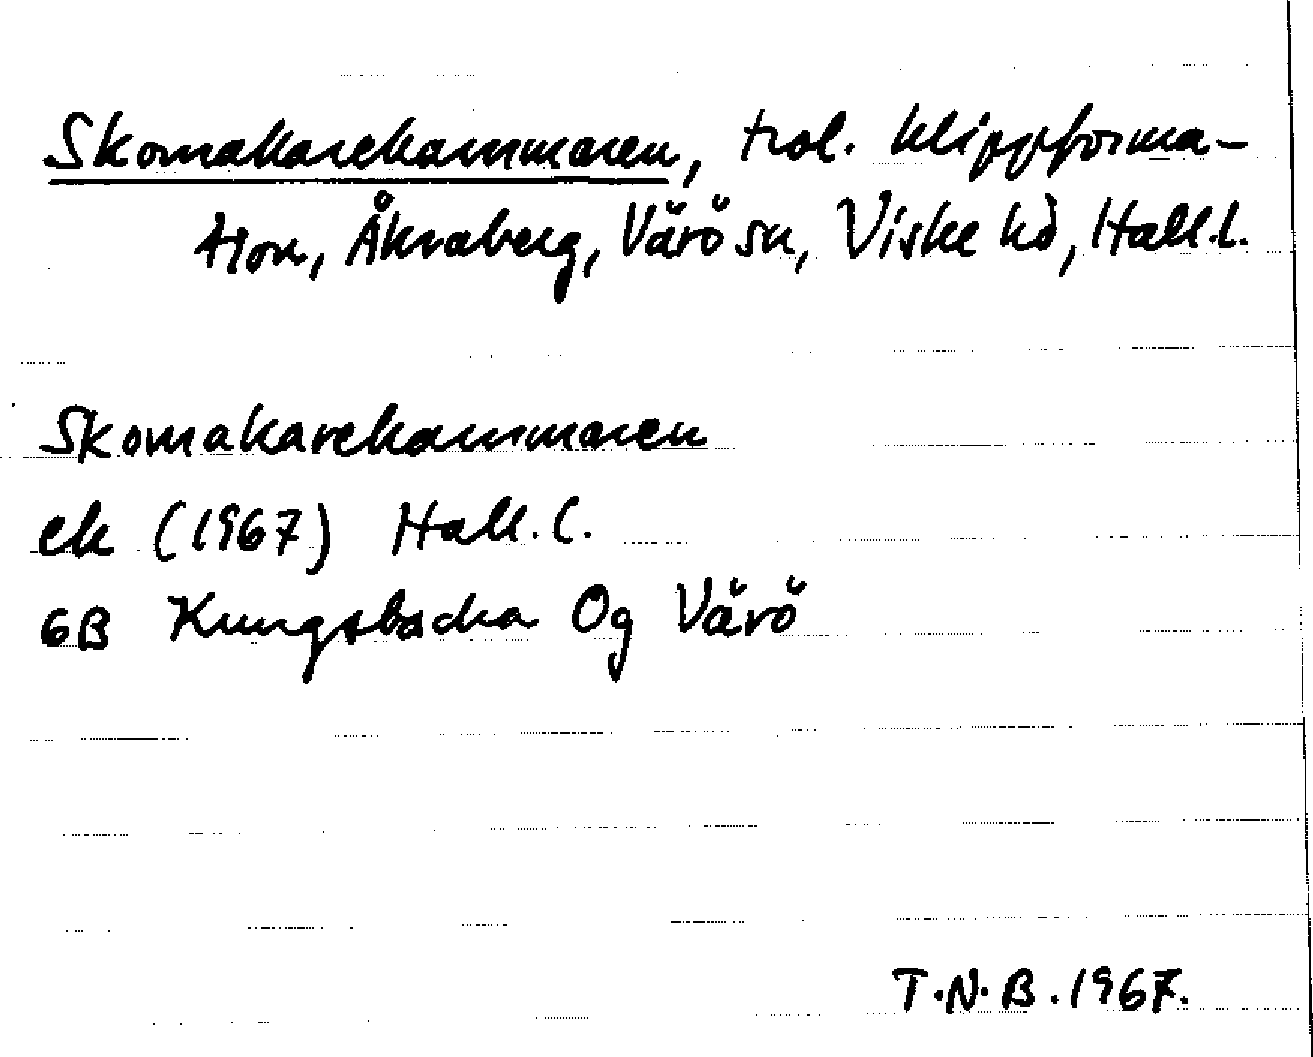 Skomakarekammaren, trol. klippforma-
tion, Åkraberg, Värö sn, Viske hd, Hall.l.
Skomakarekammaren
ek (1967) Hall.l.
6B Kungsbacka Og Värö
T.N.B. 1967.